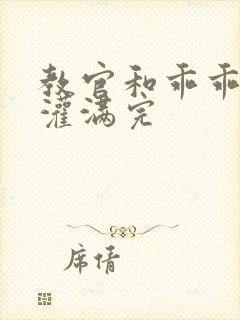 教官和乖乖
灌满完
席情